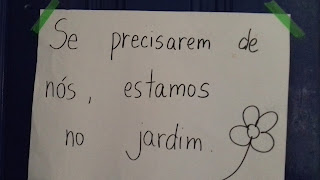 Se precisarem de
nós, estamos
no jardim.